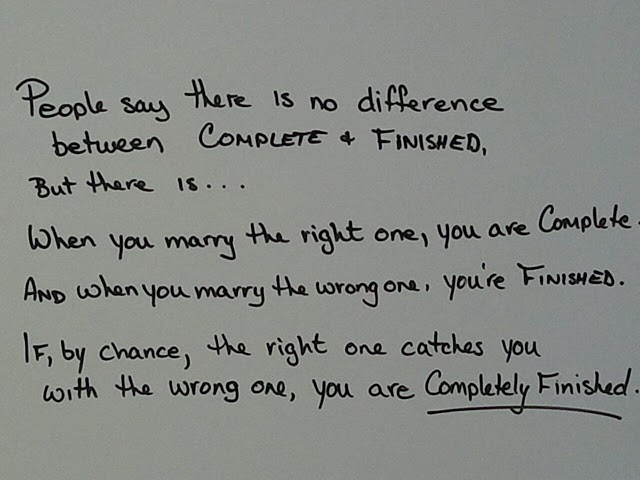 People say there is no difference
between COMPLETE & FINISHED,
But there is...
When you marry the right one, you are Complete.
AND when you marry the wrong one, you're FINISHED.
IF, by chance, the right one catches you
with the wrong one, you are Completely Finished.